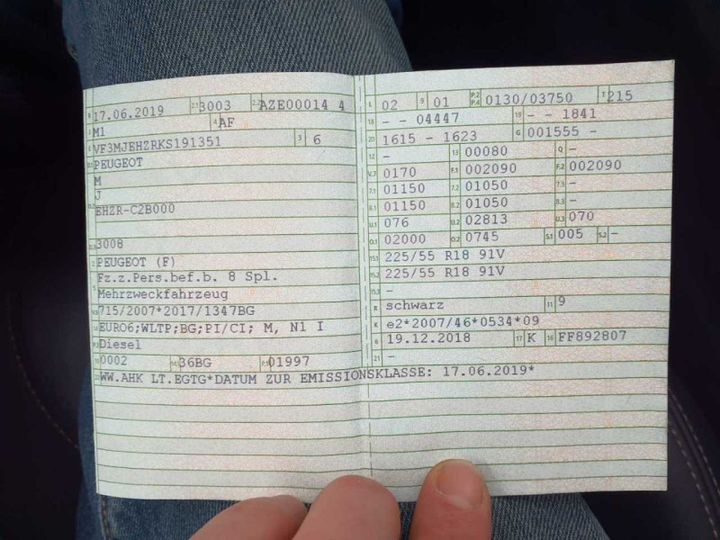 B 17.06.2019 2.1 3003 2.2 AZE00014 4
J M1 4 AF
E VF3MJEHZRKS191351 3 6
D.1 PEUGEOT
M
J
BHZR-C2B000
D.3 3008
2 PEUGEOT (F)
5 Fz.z.Pers.bef.b. 8 Spl.
Mehrzweckfahrzeug
V.9 715/2007*2017/1347BG
14 EURO6;WLTP;BG;PI/CI; M, N1 I
P.3 Diesel
10 0002 14.1 36BG P.1 01997
22 WW.AHK LT.EGTG*DATUM ZUR EMISSIONSKLASSE: 17.06.2019*
L 02 9 01 P.2 P.4 0130/03750 T 215
18 - - 04447 19 - - 1841
20 1615 - 1623 G 001555 -
12 - 13 00080 Q -
V.7 0170 F.1 002090 F.2 002090
7.1 01150 7.2 01050 7.3 -
8.1 01150 8.2 01050 8.3 -
U.1 076 U.2 02813 U.3 070
O.1 02000 O.2 0745 S.1 005 S.2 -
15.1 225/55 R18 91V
15.2 225/55 R18 91V
15.3 -
R schwarz 11 9
K e2*2007/46*0534*09
6 19.12.2018 17 K 16 FF892807
21 -